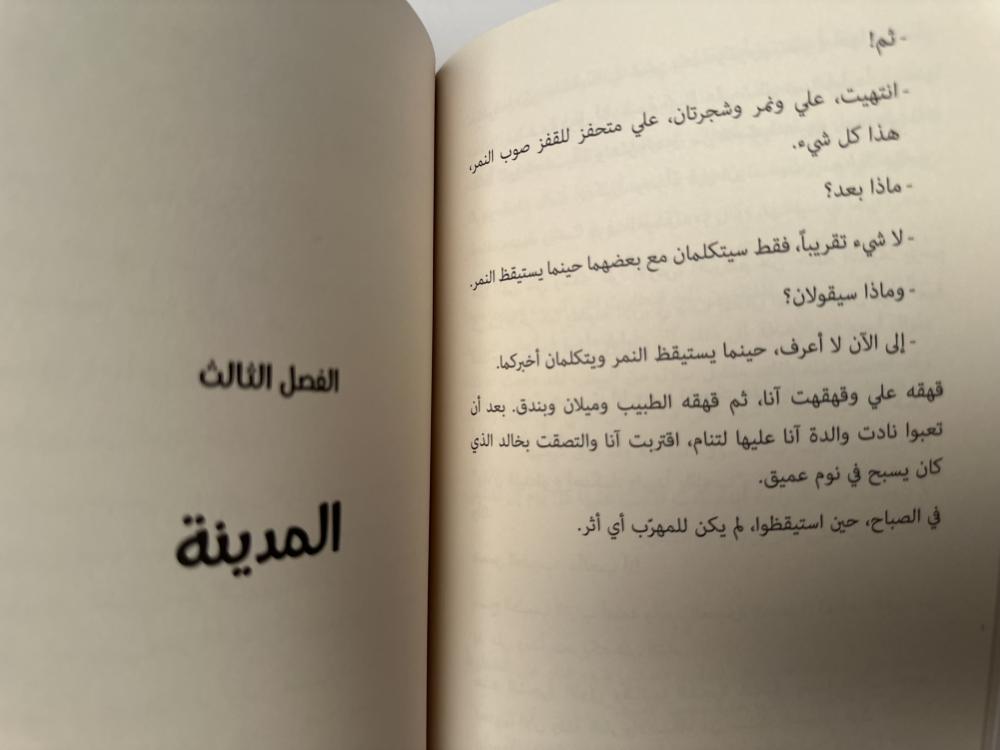 - ثم!
- انتهيت، علي ونمر وشجرتان، علي متحفز للقفز صوب النمر،
هذا كل شيء.
- ماذا بعد؟
- لا شيء تقريباً، فقط سيتكلمان مع بعضهما حينما يستيقظ النمر.
- وماذا سيقولان؟
- إلى الآن لا أعرف، حينما يستيقظ النمر ويتكلمان أخبركما.
قهقه علي وقهقهت آنا، ثم قهقه الطبيب وميلان وبندق. بعد أن
تعبوا نادت والدة آنا عليها لتنام، اقتربت آنا والتصقت بخالد الذي
كان يسبح في نوم عميق.
في الصباح، حين استيقظوا، لم يكن للمهرّب أي أثر.
الفصل الثالث
المدينة